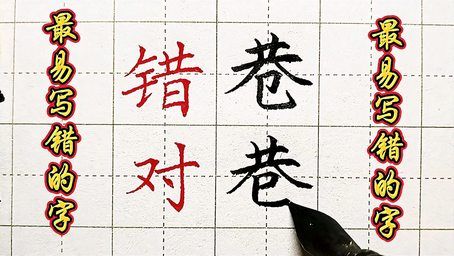 最易写错的字
错 巷
对 巷
最易写错的字